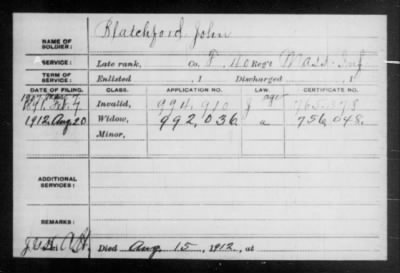 NAME OF SOLDIER: Blatchford John
SERVICE: Late rank, Co. F, 40 Reg't Mass. Inf
TERM OF SERVICE: Enlisted , 1 Discharged , 1
DATE OF FILING. CLASS. APPLICATION NO. LAW. CERTIFICATE NO.
Invalid, 994,910 765,378
1912, Aug 20 Widow, 992,036. a 756,048.
Minor,
ADDITIONAL SERVICES:
REMARKS:
Died Aug. 15, 1912, at